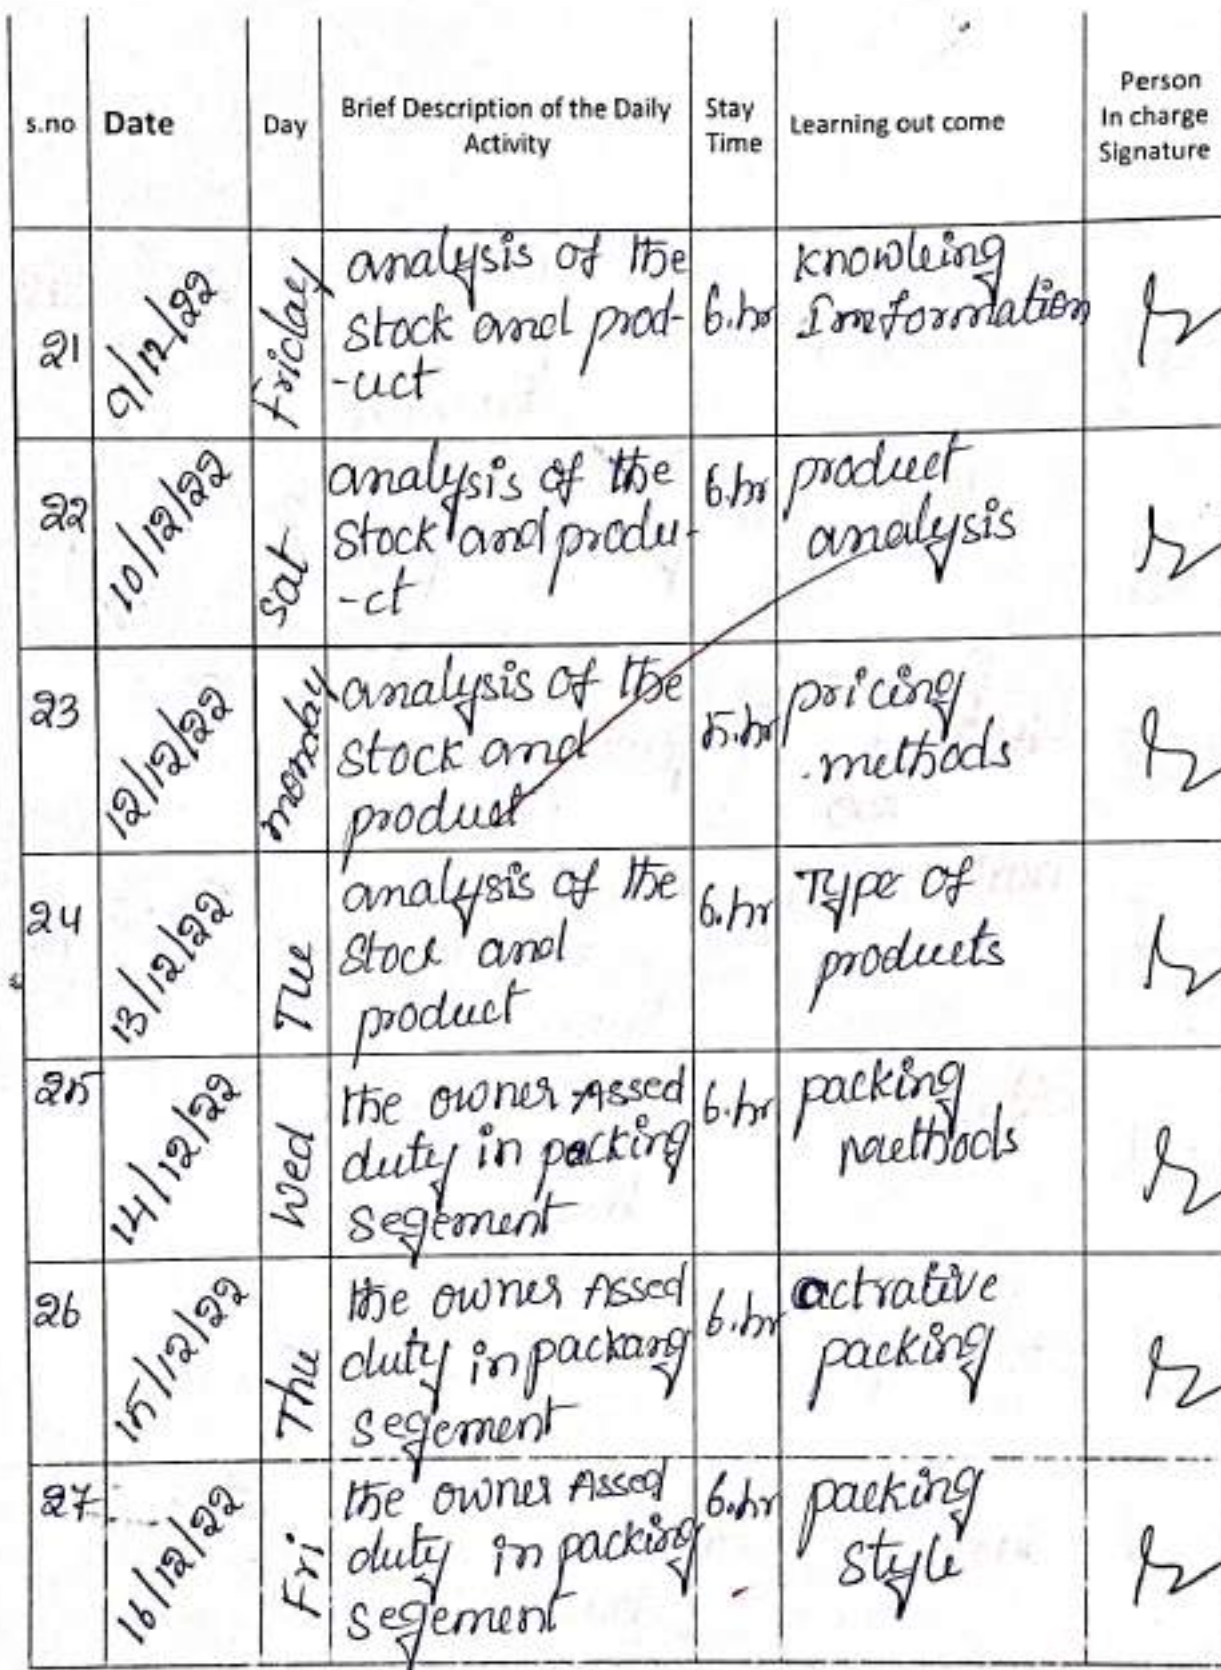 s.no Date Day Brief Description of the Daily Activity Stay Time Learning out come Person In charge Signature
21 9/12/22 Friday
analysis of the
stock and prod-
-uct
6.hr
knowleing
Imformation
22 10/12/22 Sat
analysis of the
stock and produ-
-ct
6.hr
product
analysis
23 12/12/22 monday
analysis of the
stock and
product
5.hr
pricing
methods
24 13/12/22 Tue
analysis of the
stock and
product
6.hr
Type of
products
25 14/12/22 Wed
the owner Assed
duty in packing
segement
6.hr
packing
methods
26 15/12/22 Thu
the owner Assed
duty in packang
segement
6.hr
actrative
packing
27 16/12/22 Fri
the owner Assed
duty in packing
segement
6.hr
packing
style